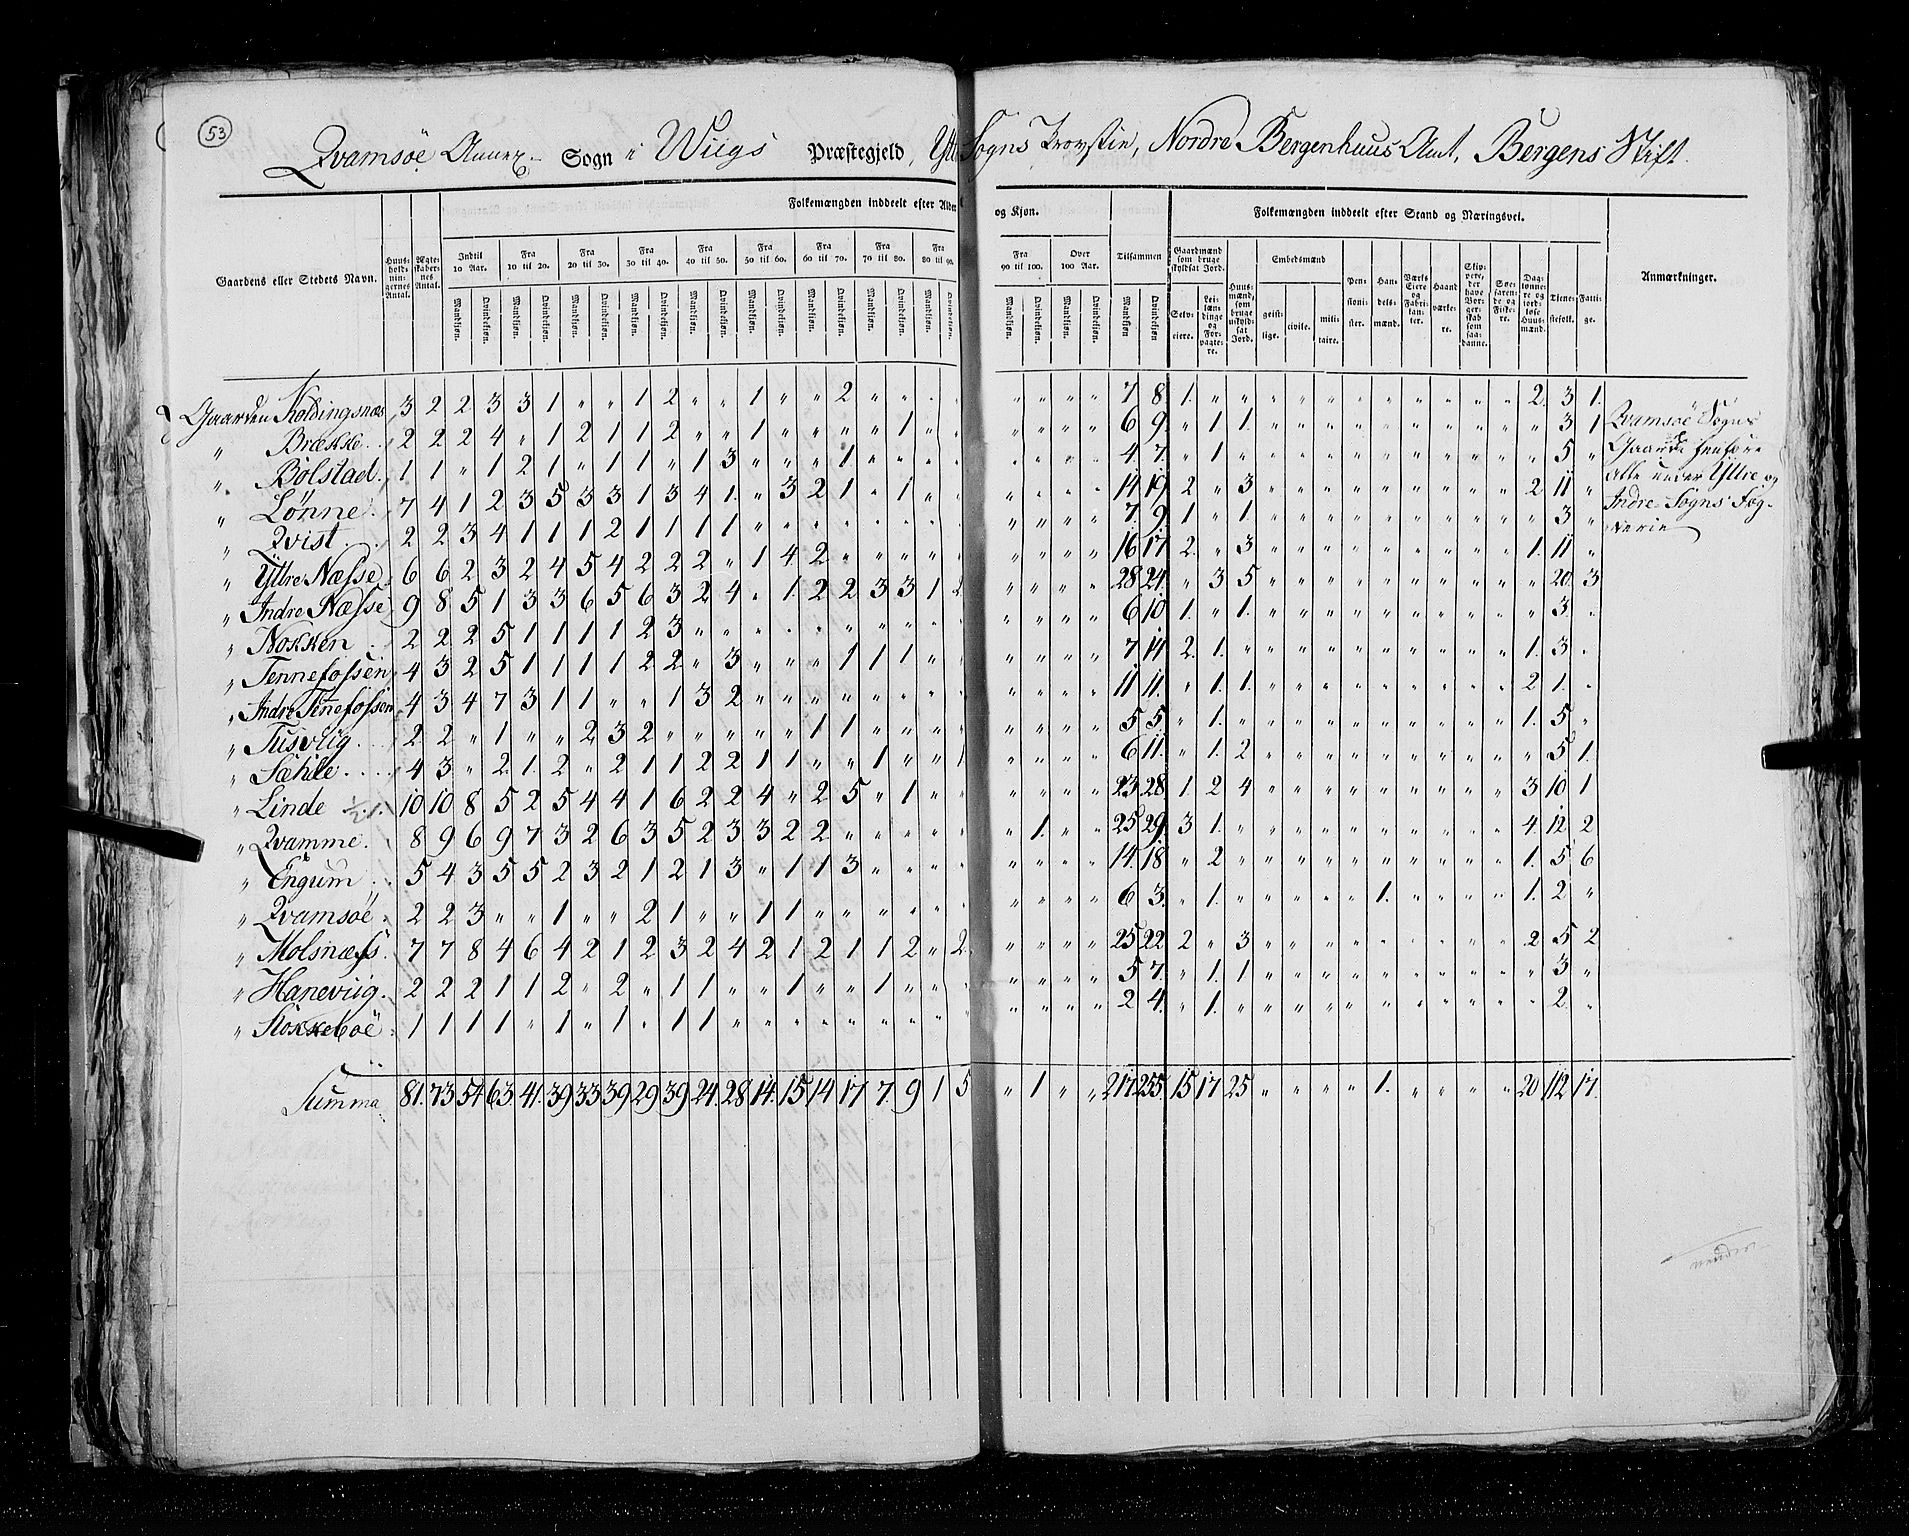 53
Qvamsöe Annex Sogn i Wiigs Præstegjeld, Yttre Sogns Provstie, Nordre Bergenhuus Amt, Bergens Stift.
Folkemængden inddeelt efter Alder og Kjøn. Folkemængden inddeelt efter Stand og Næringsvei.
Gaardens eller Stedets Navn. Huusholdningernes Antal. Ægteskabernes Antal. Indtil 10 Aar. Fra 10 til 20. Fra 20 til 30. Fra 30 til 40. Fra 40 til 50. Fra 50 til 60. Fra 60 til 70. Fra 70 til 80. Fra 80 til 90. Fra 90 til 100. Over 100 Aar. Tilsammen Gaardmænd som bruge skyldsat Jord. Huusmænd, som bruge uskyldsat Jord. Embedsmænd Pensionister. Handelsmænd. Værks Eiere og Fabrikanter. Haandværkere. Skippere, der have Borgerskab som saadanne. Søefarende og Fiskere. Daglønnere og jordløse Huusmænd. Tjenestefolk. Fattige. Anmærkninger.
Mandkjøn. Qvindekjøn. Mandkjøn. Qvindekjøn. Mandkjøn. Qvindekjøn. Mandkjøn. Qvindekjøn. Mandkjøn. Qvindekjøn. Mandkjøn. Qvindekjøn. Mandkjøn. Qvindekjøn. Mandkjøn. Qvindekjøn. Mandkjøn. Qvindekjøn. Mandkjøn. Qvindekjøn. Mandkjøn. Qvindekjøn. Mandkjøn. Qvindekjøn. Selveiere. Leilændinge og Forpagtere. geistlige. civile. militaire.
Gaarden Holdingsnæs 3 2 2 3 3 1 " " 1 2 " " 1 " " 2 " " " " " " " " 7 8 1. " " " " " " " " " " " 2. 3 1.
" Brække 2 2 2 4 " 1 2 1 1 2 " " 1 " " " " 1 " " " " " " 6 9. " 1 1. " " " " " " " " " " 3 1 Qvamsöe Sogns
" Bolstad 1 1 " 1 2 1 " 1 1 " 1 3 " " " 1 " " " " " " " " 4 7. " 1 " " " " " " " " " " " 5 " Gaarde henføre
" Lønne 7 4 1 2 3 5 3 3 1 3 4 1. " 3 2 1 " 1 " " " " " " 14 19 2 " 3 " " " " " " " " " 2 11 " alle under Yttre og
" Qvist 2 2 3 4 1 1 1 2 1 1 1 1 " " " " " " " " " " " " 7. 9. 1 " 1. " " " " " " " " " " 3 " Indre-Sogns Fog-
" Yttre Næsse 6 6 2 3 2 4 5 4 2 2 2 " 1 4 2 " " " " " " " " " 16 17 2. " 3 " " " " " " " " " 1. 11 " derie
" Indre Næsse 9 8 5 1 3 3 6 5 6 3 2 4 " 1 2 2 3 3 1 2 " " " " 28 24. " 3 5 " " " " " " " " " " 20. 3
" Nokken 2 2 2 5 1 1 1 1 2 3 " " " " " " " " " " " " " " 6 10 1. " 1. " " " " " " " " " " 3 "
" Tennefossen 4 3 2 5 1 1 1 1 2 2 " 3 " " " 1 1 1 " " " " " " 7 14 2. 1. " " " " " " " " " " 1. 3 "
" Indre Tennefossen 4 3 4 7 3 1 1 " " 1 3 2 " " " " " " " " " " " " 11 11. " 1. 1. " " " " " " " " " 2 1. "
" Tusviig 2 2 " 1 " " 2 3 2 " " " " " 1 1 " " " " " " " " 5 5. " 1. " " " " " " " " " " 1. 5 "
" Sæhle 4 3 " 2. 1. 2 " 2 1 1 2 2 1 1 " " 1 " " 1 " " " " 6 11. " 1. 2 " " " " " " " " " " 5 1.
" Linde 10 10 8 5 2 5 4 4 1 6 2 2 4 " 2 5 " 1 " " " " " " 23 28 1. 2 4 " " " " " " " " " 3 10 1
" Qvamme 8 9 6 9 7 3 2 6 3 5 2 3 3 2 2 " " " " " " 1. " " 25 29. 3 1. " " " " " " " " " " 4. 12. 2
" Engum 5 4 3 5 5 2 3 2 1 2 1 3 " 1 1 3 " " " " " " " " 14. 18 " 2 " " " " " " " " " " 1. 5 6
" Qvamsöe 2 2 3 " " 1 " " 2 1 " " 1 1 " " " " " " " " " " 6 3. " 1. " " " " " 1. " " " " 1. 2 "
" Molsnæss 7 7 8 4 6 4 2 1 2 3 2 4 2 1 2 1 1 2 " 2 " " " " 25 22 2 " 3 " " " " " " " " " 2 5 2
" Haneviig 2 2 2 1 1 2 " 2 " 1 1 " " 1 " " 1 " " " " " " " 5 7. " 1. 1 " " " " " " " " " " 3 "
" Stokkeboe 1 1 1 1 " 1 " 1 " 1 1 " " " " " " " " " " " " " 2 4. " 1. " " " " " " " " " " " 2 "
Summa 81. 73 54 63 41. 39 33 39 29 39 24. 28 14. 15 14 17 7. 9 1 5 " 1 " " 217 255. 15 17 25 " " " " 1. " " " " 20 112 17.